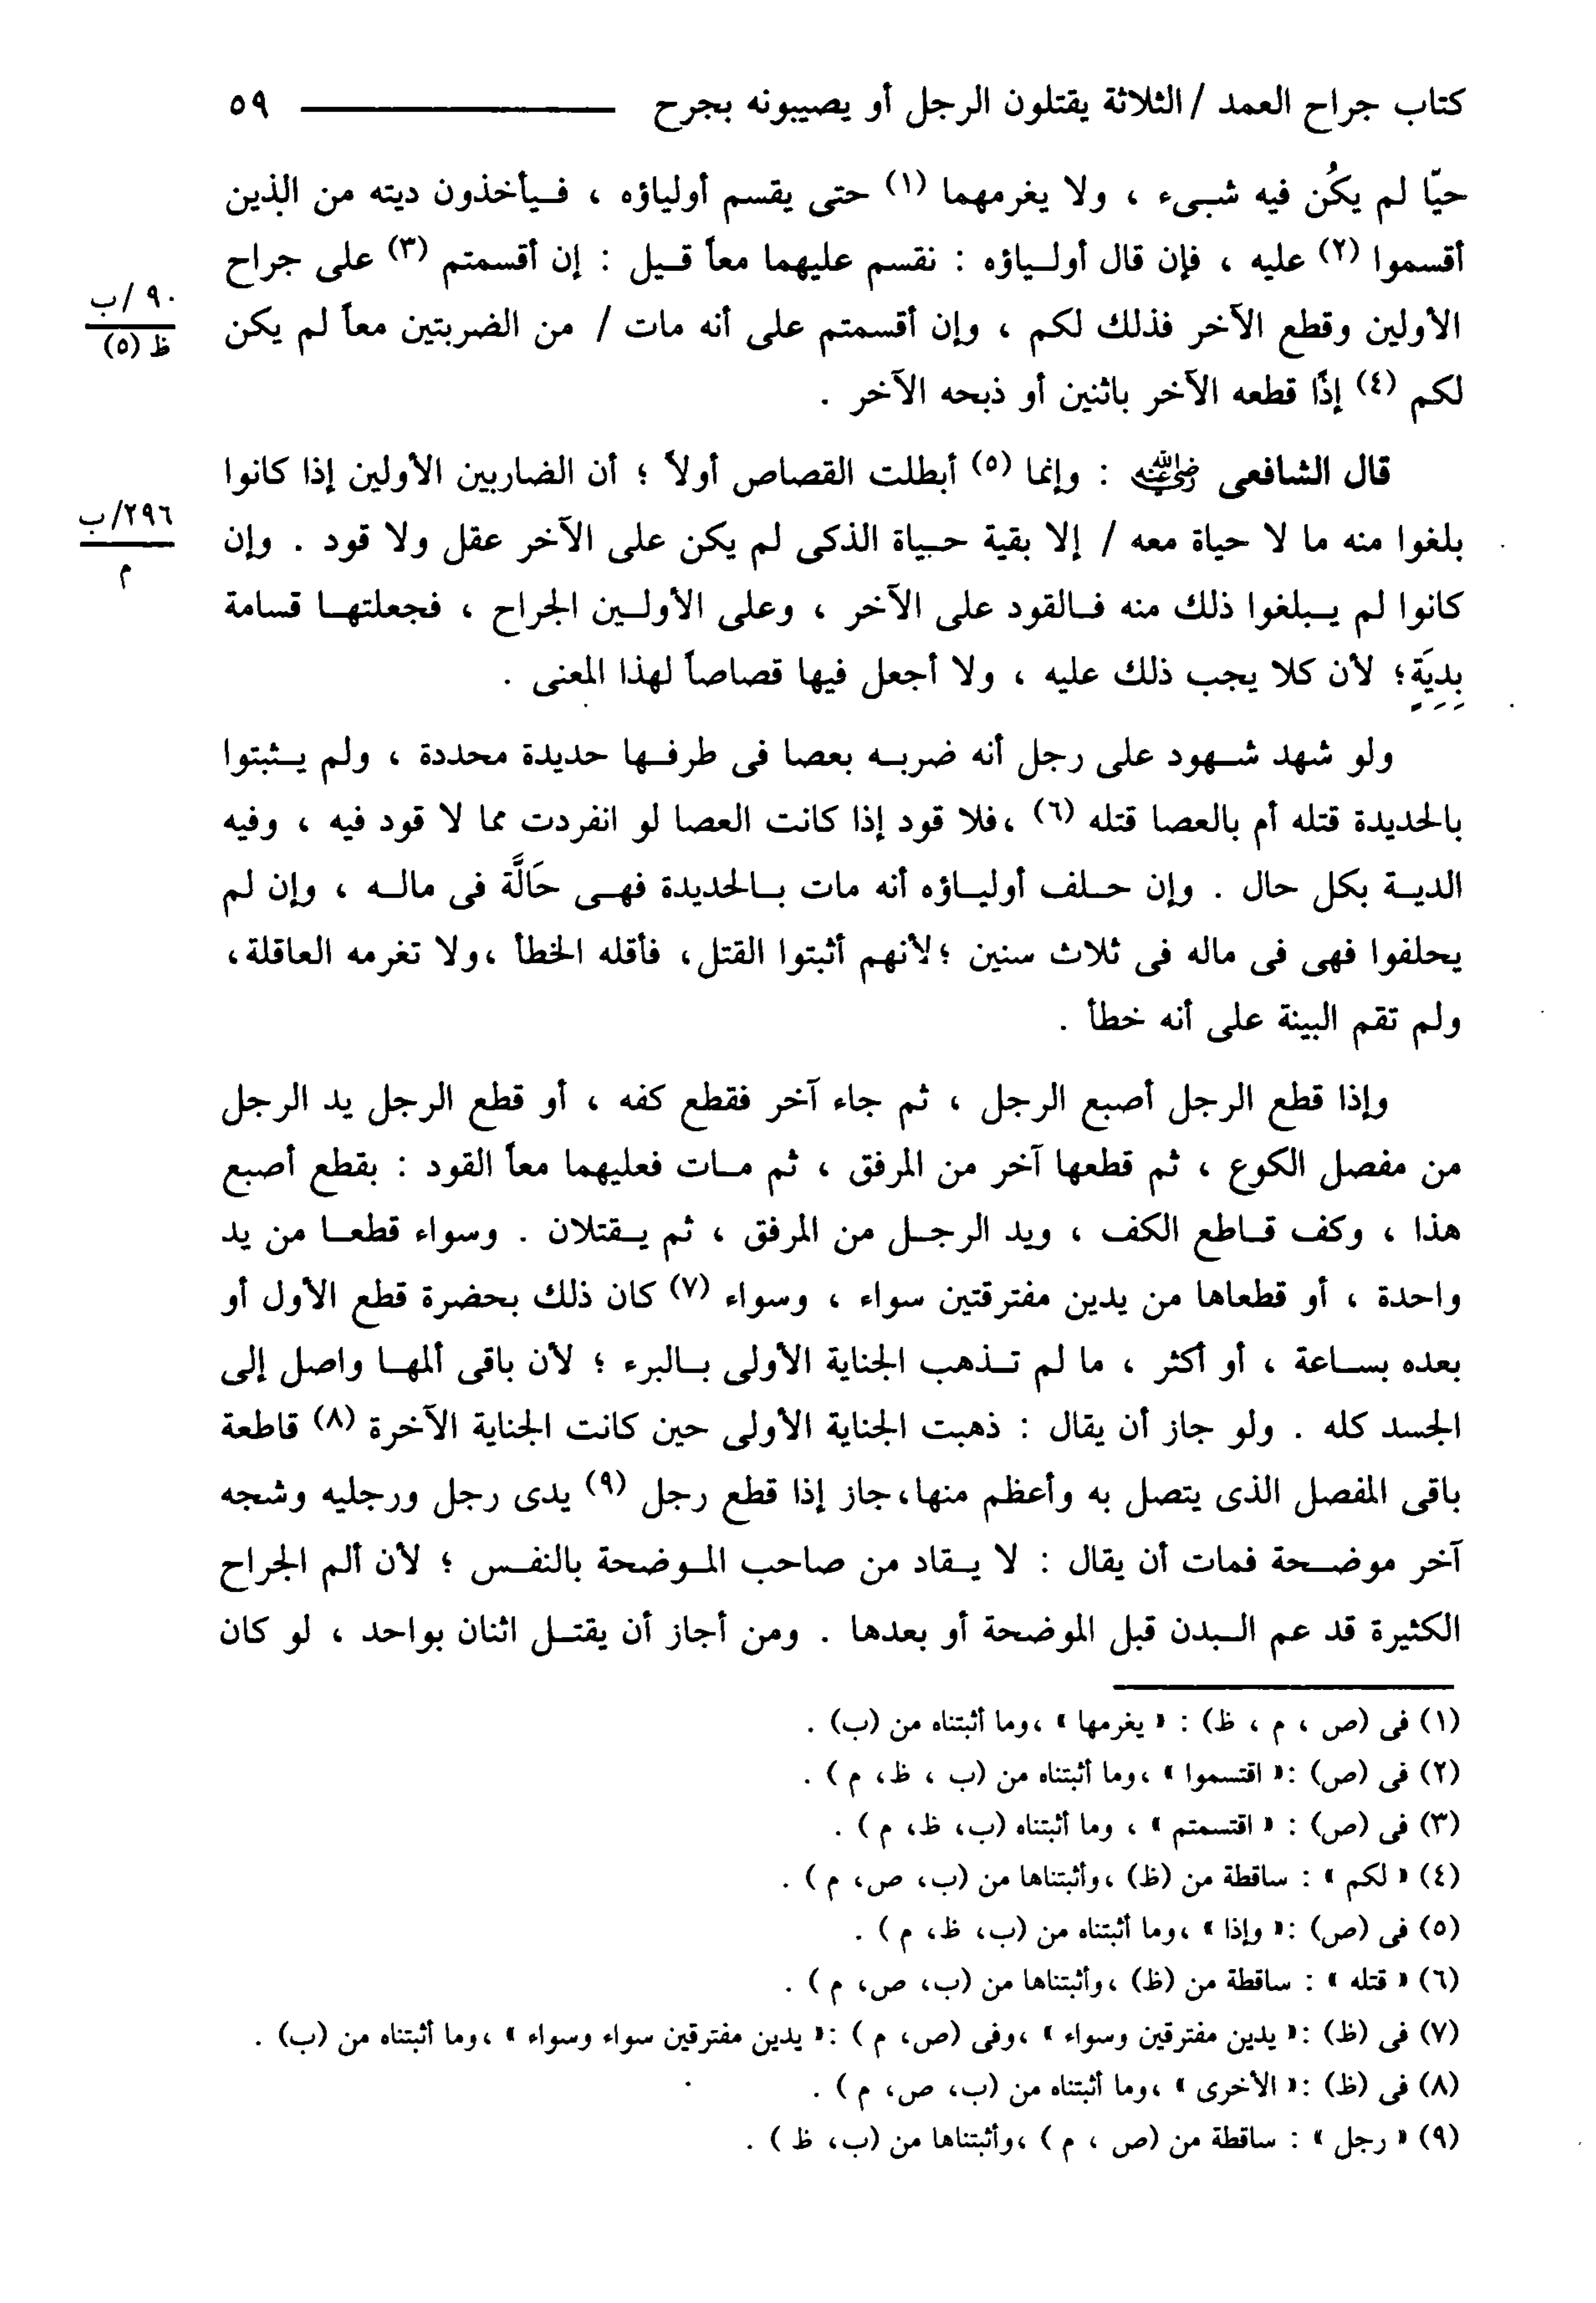 كتاب جراح العمد / الثلاثة يقتلون الرجل أو يصيبونه بجرح ـــــــ ٥٩
حيّا لم يكُن فيه شىء ، ولا يغرمهما (١) حتى يقسم أولياؤه ، فيأخذون ديته من الذين
أقسموا (٢) عليه ، فإن قال أولياؤه : نقسم عليهما معاً قيل : إن أقسمتم (٣) على جراح
الأولين وقطع الآخر فذلك لكم ، وإن أقسمتم على أنه مات / من الضربتين معاً لم يكن
٩٠ /ب
ظ (٥)
لكم (٤) إذًا قطعه الآخر باثنين أو ذبحه الآخر .
قال الشافعى رضي الله عنه : وإنما (٥) أبطلت القصاص أولاً ؛ أن الضاربين الأولين إذا كانوا
بلغوا منه ما لا حياة معه / إلا بقية حياة الذكى لم يكن على الآخر عقل ولا قود . وإن
٢٩٦/ب
م
كانوا لم يبلغوا ذلك منه فالقود على الآخر ، وعلى الأولين الجراح ، فجعلتها قسامة
بِدِيَةٍ؛ لأن كلا يجب ذلك عليه ، ولا أجعل فيها قصاصاً لهذا المعنى .
ولو شهد شهود على رجل أنه ضربه بعصا فى طرفها حديدة محددة ، ولم يثبتوا
بالحديدة قتله أم بالعصا قتله (٦) ،فلا قود إذا كانت العصا لو انفردت مما لا قود فيه ، وفيه
الدية بكل حال . وإن حلف أولياؤه أنه مات بالحديدة فهى حَالَّة فى ماله ، وإن لم
يحلفوا فهى فى ماله فى ثلاث سنين ؛لأنهم أثبتوا القتل، فأقله الخطأ ،ولا تغرمه العاقلة،
ولم تقم البينة على أنه خطأ .
وإذا قطع الرجل أصبع الرجل ، ثم جاء آخر فقطع كفه ، أو قطع الرجل يد الرجل
من مفصل الكوع ، ثم قطعها آخر من المرفق ، ثم مات فعليهما معاً القود : بقطع أصبع
هذا ، وكف قاطع الكف ، ويد الرجل من المرفق ، ثم يقتلان . وسواء قطعا من يد
واحدة ، أو قطعاها من يدين مفترقتين سواء ، وسواء (٧) كان ذلك بحضرة قطع الأول أو
بعده بساعة ، أو أكثر ، ما لم تذهب الجناية الأولى بالبرء ؛ لأن باقى ألمها واصل إلى
الجسد كله . ولو جاز أن يقال : ذهبت الجناية الأولى حين كانت الجناية الآخرة (٨) قاطعة
باقى المفصل الذى يتصل به وأعظم منها،جاز إذا قطع رجل (٩) يدى رجل ورجليه وشجه
آخر موضحة فمات أن يقال : لا يقاد من صاحب الموضحة بالنفس ؛ لأن ألم الجراح
الكثيرة قد عم البدن قبل الموضحة أو بعدها . ومن أجاز أن يقتل اثنان بواحد ، لو كان
(١) فى (ص ، م ، ظ) : « يغرمها » ،وما أثبتناه من (ب) .
(٢) فى (ص) :« اقتسموا » ،وما أثبتناه من (ب ، ظ، م ) .
(٣) فى (ص) : « اقتسمتم » ، وما أثبتناه (ب، ظ، م ) .
(٤) « لكم » : ساقطة من (ظ) ،وأثبتناها من (ب، ص، م ) .
(٥) فى (ص) :« وإذا » ،وما أثبتناه من (ب، ظ، م ) .
(٦) « قتله » : ساقطة من (ظ) ،وأثبتناها من (ب، ص، م ) .
(٧) فى (ظ) :« يدين مفترقين وسواء » ،وفى (ص، م ) :« يدين مفترقين سواء وسواء » ،وما أثبتناه من (ب) .
(٨) فى (ظ) :« الأخرى » ،وما أثبتناه من (ب، ص، م ) .
(٩) « رجل » : ساقطة من (ص ، م ) ،وأثبتناها من (ب، ظ ) .